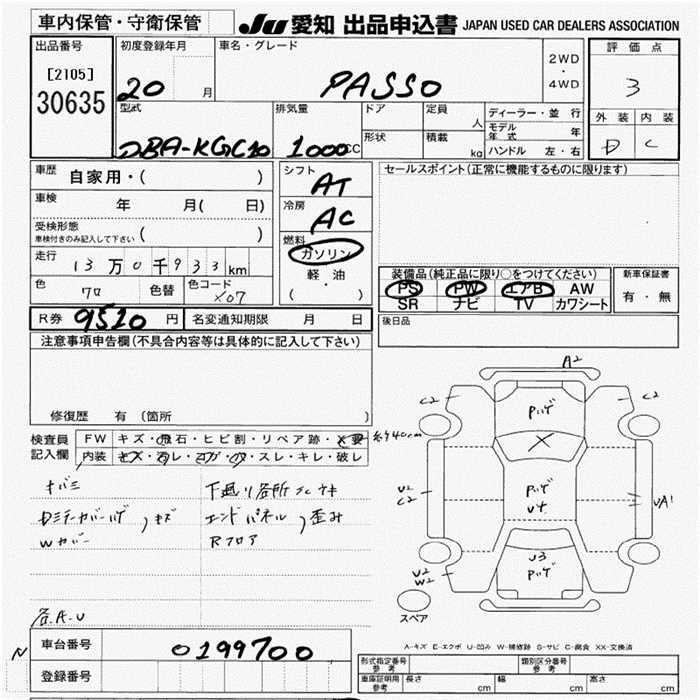 車内保管・守衛保管
JU 愛知 出品申込書 JAPAN USED CAR DEALERS ASSOCIATION
出品番号
[2105]
30635
初度登録年月
20 月
車名・グレード
PASSO
2WD
・
4WD
評価点
3
外装 内装
D C
型式
DBA-KGC10
排気量
1000cc
ドア
形状
定員 人
積載 kg
ディーラー・並行
モデル年式 年
ハンドル 左・右
車歴 自家用・( )
車検 年 月( 日)
受検形態
車検付きのみ記入して下さい ( )
走行 13万0千933km
色 クロ 色替 色コード X07
シフト
AT
冷房
AC
燃料
ガソリン
軽・油
( ・ )
セールスポイント(正常に機能するものに限ります)
装備品(純正品に限り○をつけてください)
PS PW エアB AW
SR ナビ TV カワシート
新車保証書
有・無
R券 9510 円 名変通知期限 月 日
後日品
注意事項申告欄(不具合内容等は具体的に記入して下さい)
修復歴 有 (箇所
検査員
記入欄
FW キズ・飛石・ヒビ割・リペア跡・X要 約40cm
内装 キズ・汚レ・コゲ・穴・スレ・キレ・破レ
下廻り各所
エンドパネル 歪み
Rフロア
Wカバー
各A.U
A2
C2
C2
Pハゲ
X
U2
C2
Pハゲ
UA1
U3
Pハゲ
U2
W2
スペア
A-キズ E-エクボ U-凹み W-補修跡 S-サビ C-腐食 XX-交換済
N
車台番号 0199700
登録番号
形式指定番号
参考
類別区分番号
参考
車庫証明用
参考
長さ cm 幅 cm 高さ cm